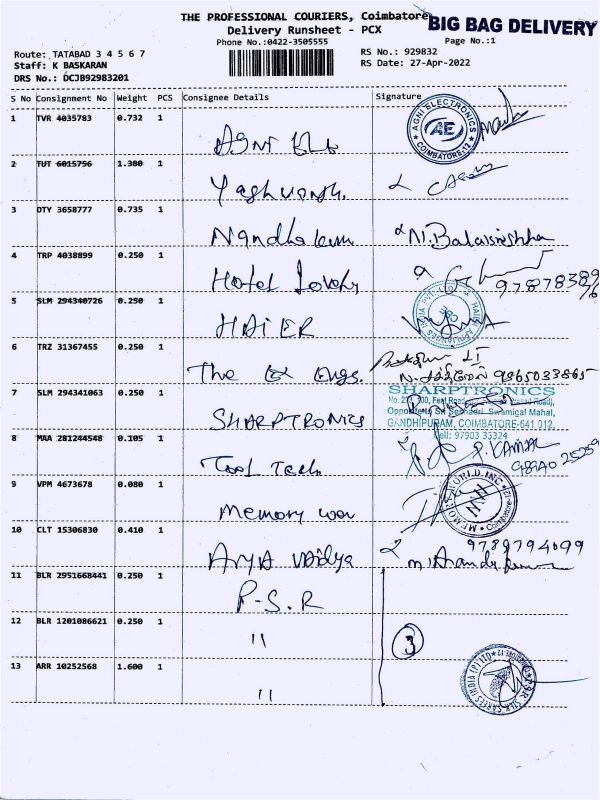 THE PROFESSIONAL COURIERS, Coimbatore
BIG BAG DELIVERY
Delivery Runsheet - PCX
Phone No.:0422-3505555
Page No.:1
Route: TATABAD 3 4 5 6 7
RS No.: 929832
Staff: K BASKARAN
RS Date: 27-Apr-2022
DRS No.: DCJB92983201
S No Consignment No Weight PCS Consignee Details Signature
1 TVR 4035783 0.732 1
AGNI ELECTRONICS
COIMBATORE-12
AE
2 TUT 6015756 1.380 1
3 DTY 3658777 0.735 1
Nandhakum
4 TRP 4038899 0.250 1
Hotel Lovely
5 SLM 294340726 0.250 1
HAIER
6 TRZ 31367455 0.250 1
The Engs.
9965033865
7 SLM 294341063 0.250 1
SHARPTRONICS
SHARPTRONICS
Swamigal Mahal,
GANDHIPURAM, COIMBATORE-641 012.
Cell: 97903 35324
8 MAA 281244548 0.105 1
Tool Tech
P. KAMAL
9 VPM 4673678 0.080 1
Memory wor
MEMORY WORLD INC
10 CLT 15306830 0.410 1
Arya vaidya
9789794099
11 BLR 2951668441 0.250 1
P-S.R
12 BLR 1201086621 0.250 1
11
3
13 ARR 10252568 1.600 1
11
P.S.R. SILK SAREES INDIA (P) LTD